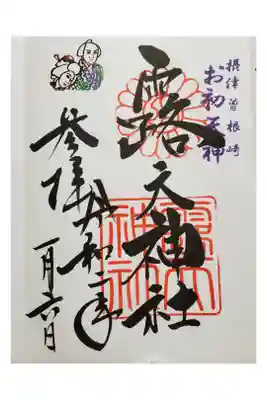 摂津曽根崎
お初天神
露天神社
令和二年
参拝
一月六日
露天
神社